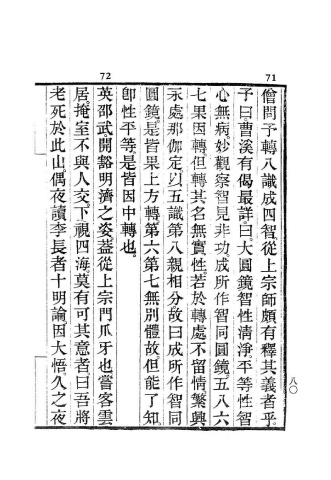 71
僧問。予轉八識成四智。從上宗師頗有釋其義者乎。
予曰。曹溪有偈最詳曰。大圓鏡智性清淨。平等性智
心無病。妙觀察智見非功。成所作智同圓鏡。五八六
七果因轉。但轉其名無實性。若於轉處不留情。繁興
永處那伽定。以五識第八親相分故曰。成所作智同
圓鏡。是皆果上方轉。第六第七無別體故。但能了知。
卽性平等。是皆因中轉也。
72
英邵武。開豁明濟之姿。蓋從上宗門爪牙也。嘗客雲
居。掩室不與人交。下視四海莫有可其意者。曰。吾將
老死於此山。偶夜讀李長者十明論。因大悟。久之夜
八〇